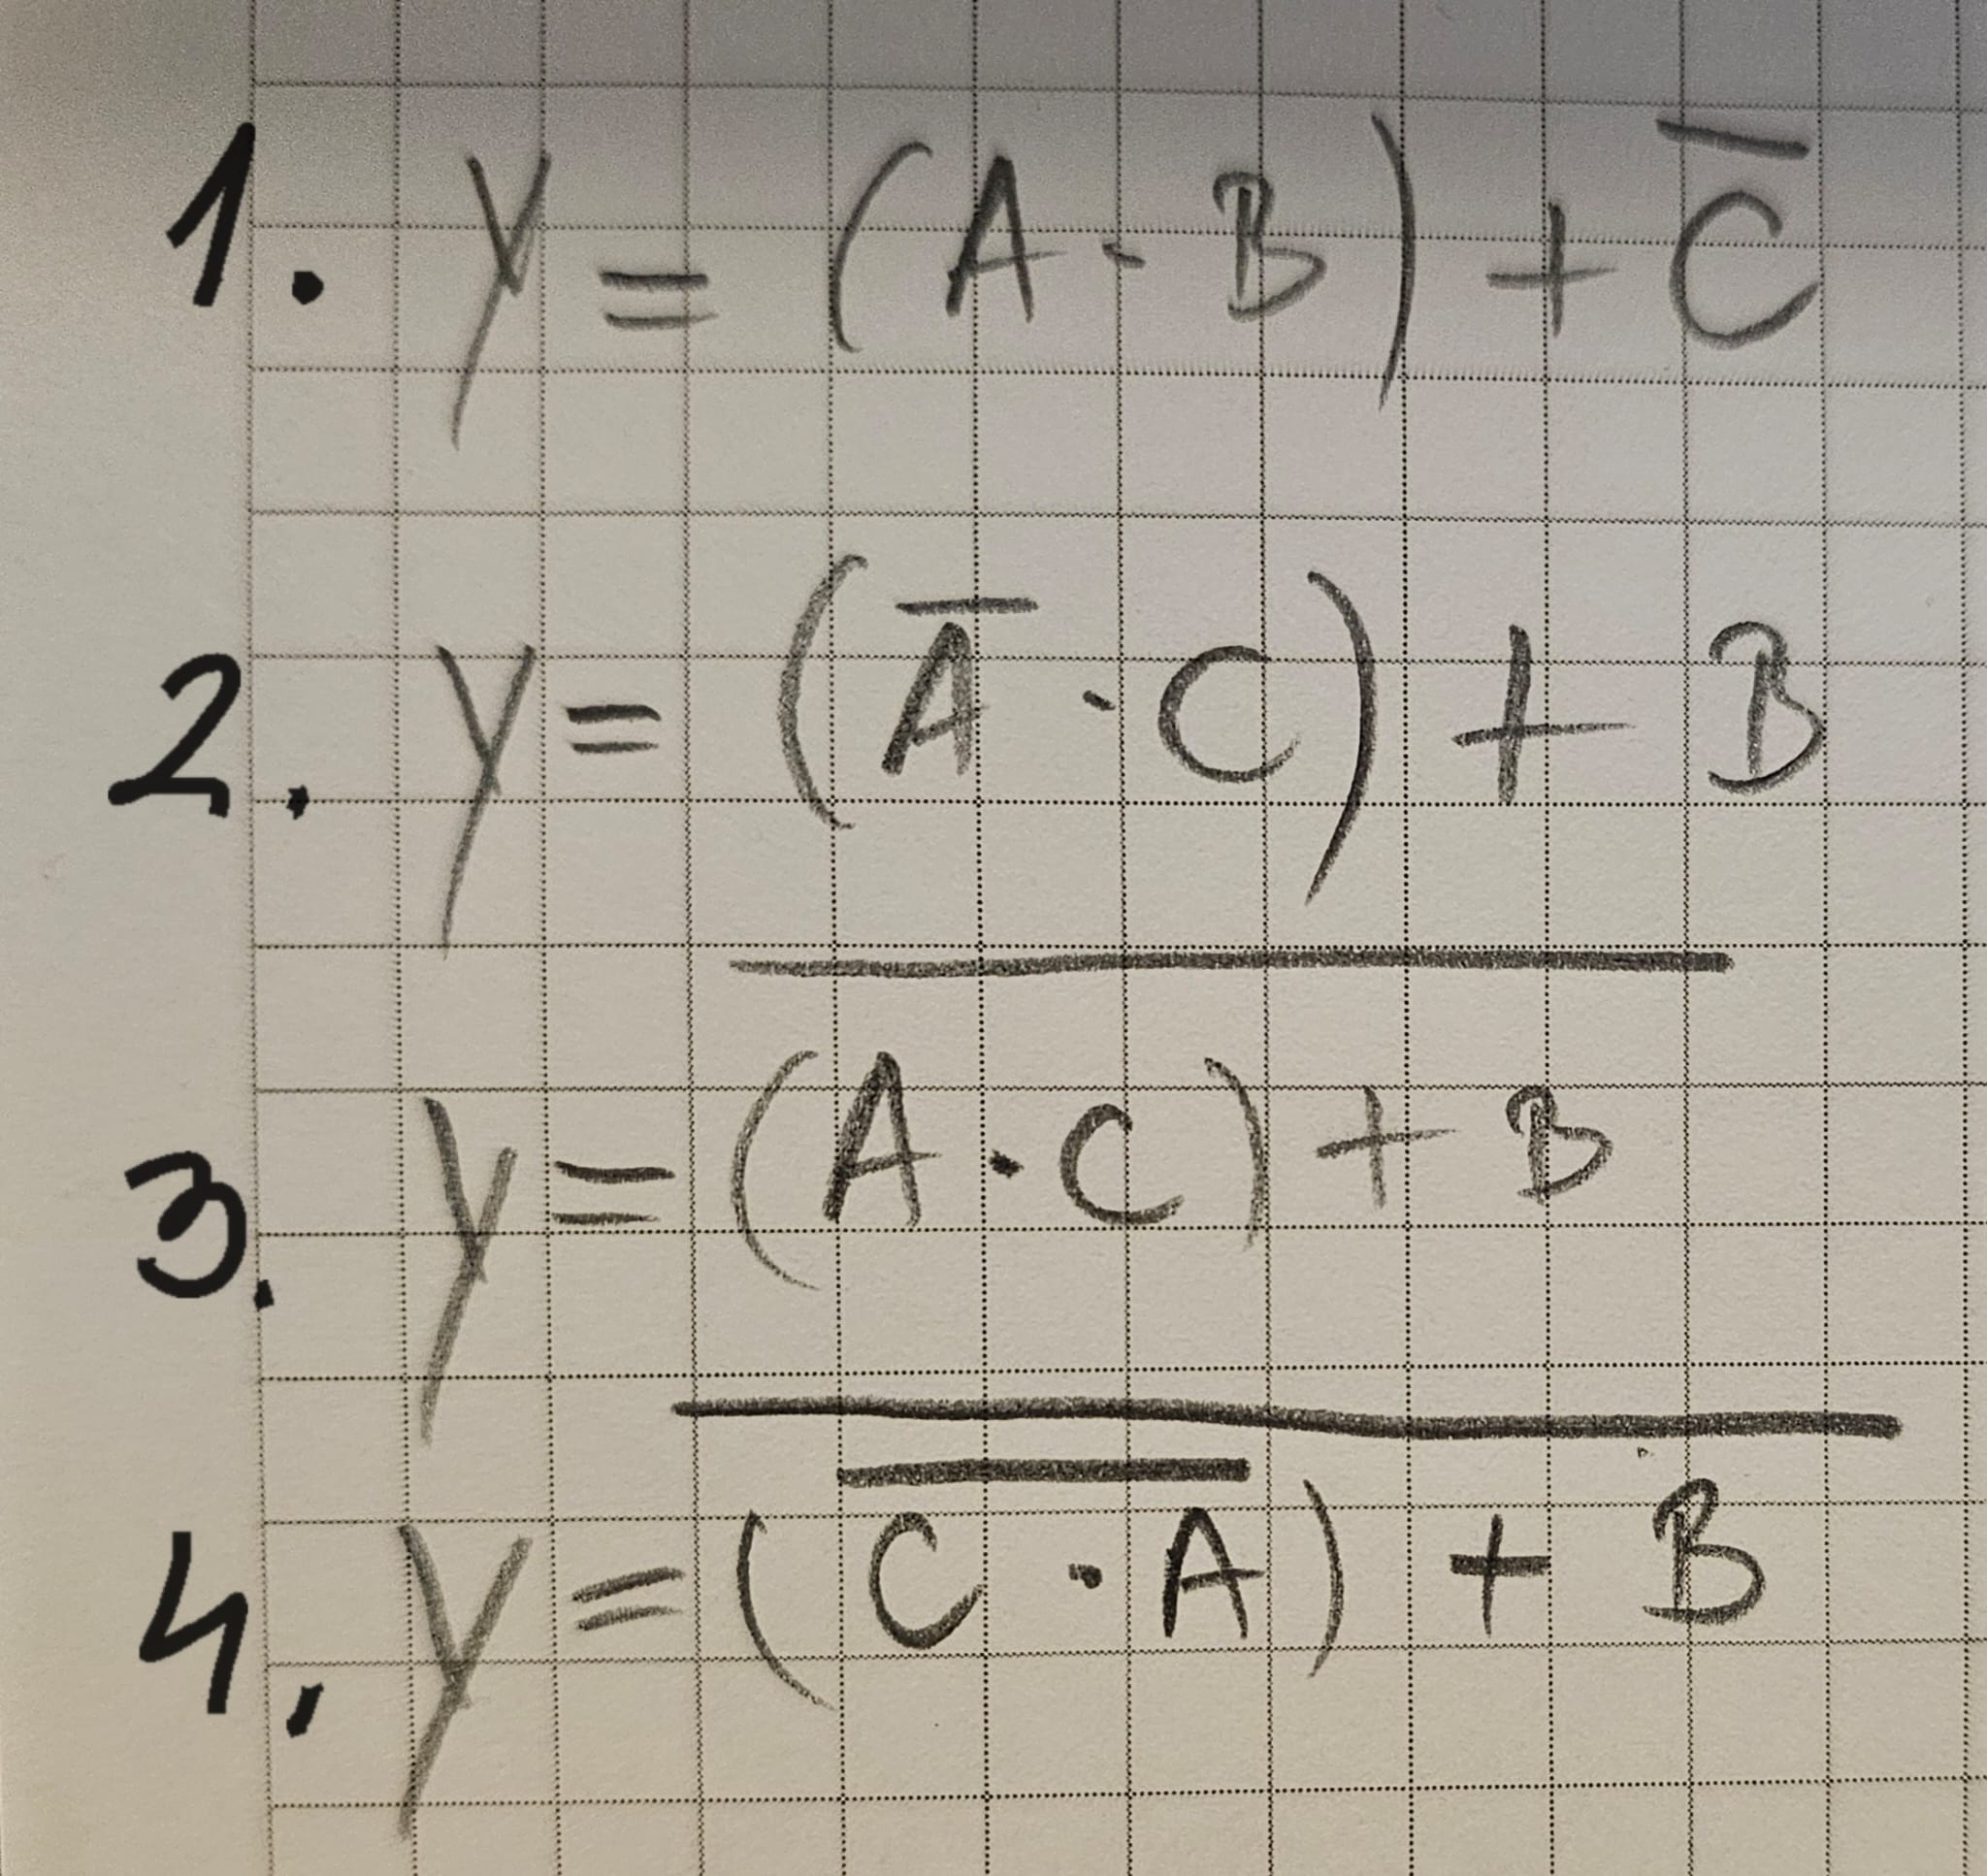 1. Y = (A · B) + C̅
2. Y = (A̅ · C) + B
3. Y = \overline{(A · C) + B}
4. Y = \overline{(\overline{C · A}) + B}